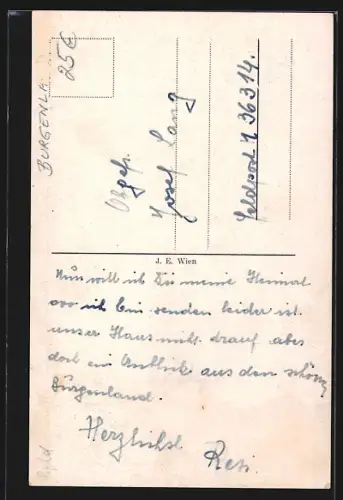 BURGENLA.
25€
Obgefr.
Josef Lang
Feldpost N 36314.
J. E. Wien
Nun will ich Dir meine Heimat
wo ich bin senden leider ist
unser Haus nicht drauf aber
doch ein Anblick aus dem schönen
Burgenland.
Herzlichst
Resi.